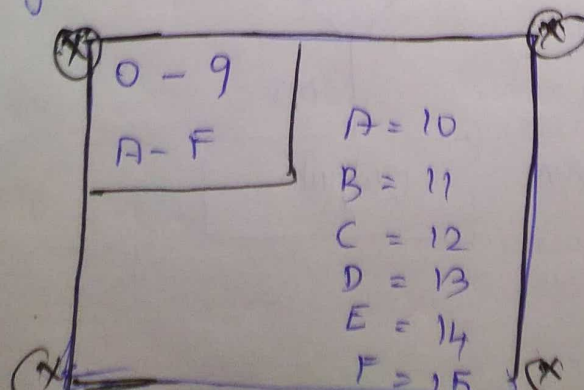 X
X
0 - 9
A - F
A = 10
B = 11
C = 12
D = 13
E = 14
F = 15
X
X